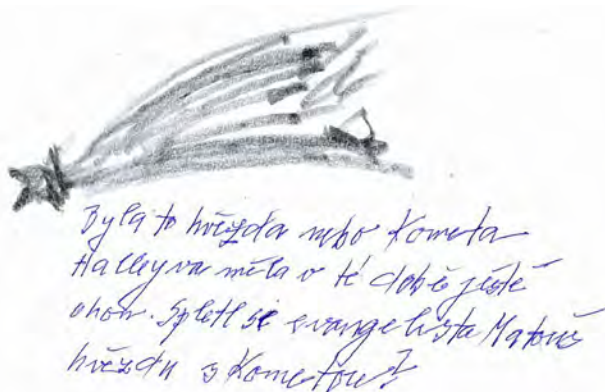 Byla to hvězda nebo Kometa
Halleyva měla v té době ještě
ohon. Spletl si evangelista Matouš
hvězdu s Kometou?